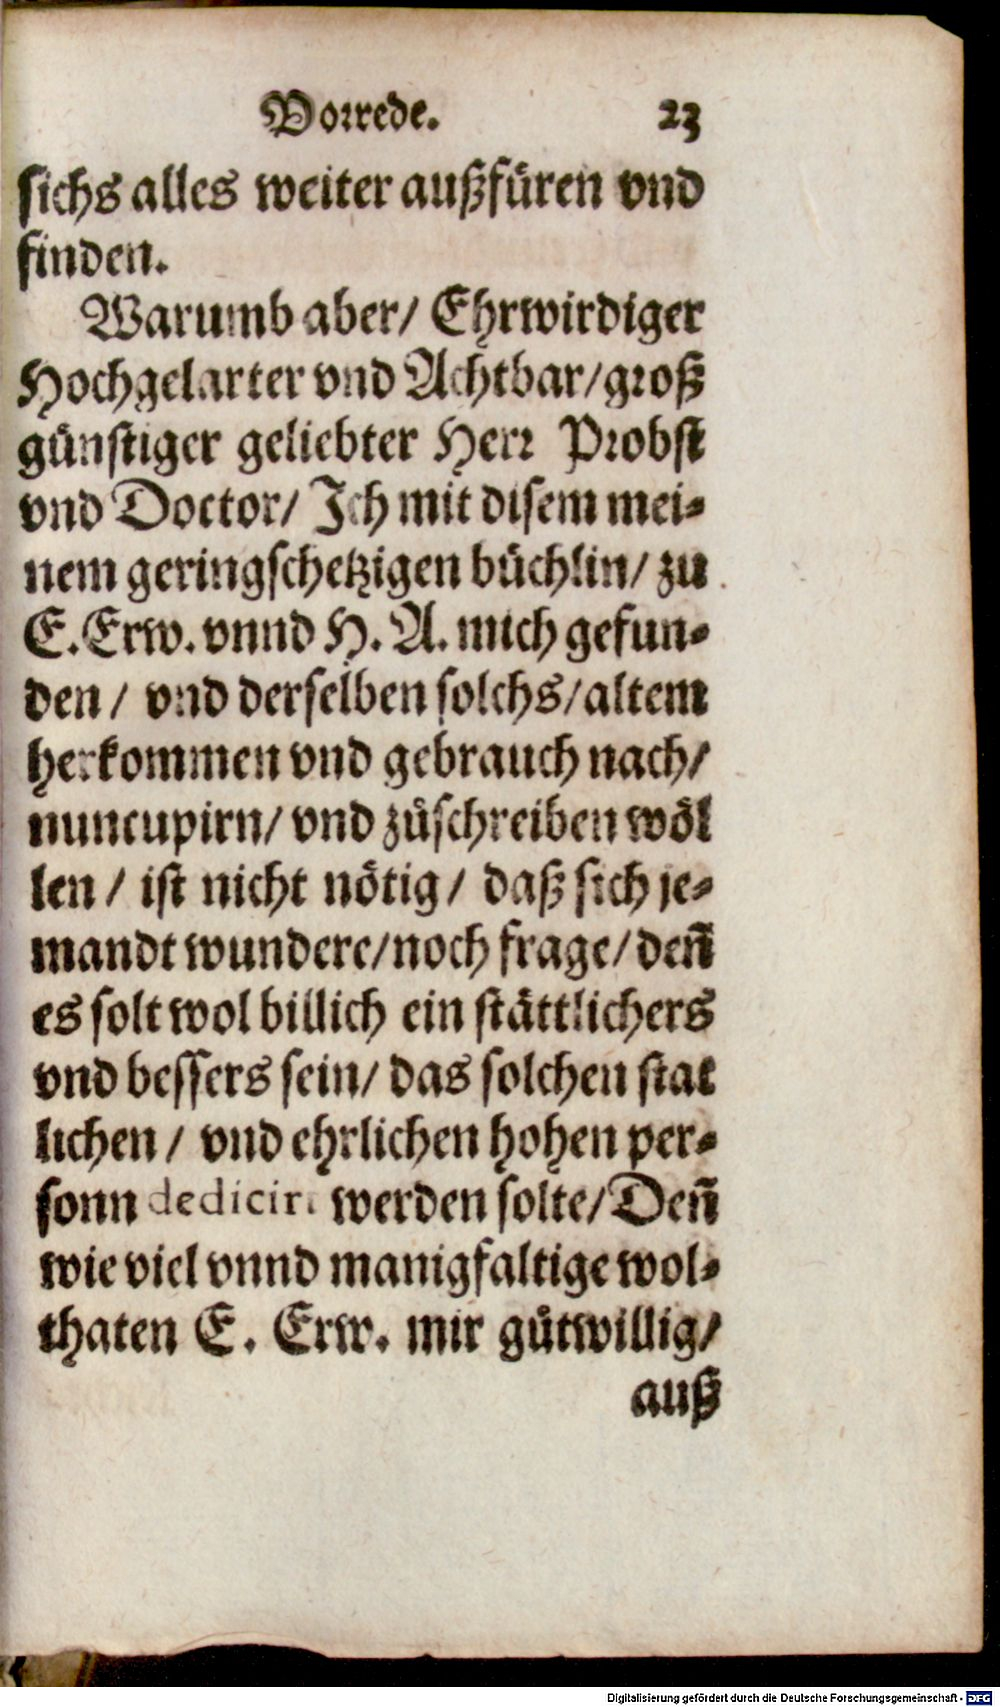 Vorrede. 23
sichs alles weiter außfüren vnd
finden.
Warumb aber/ Ehrwirdiger
Hochgelarter vnd Achtbar/ groß
günstiger geliebter Herr Probst
vnd Doctor/ Ich mit disem mei⸗
nem geringschetzigen büchlin/ zu
E. Erw. vnnd H. A. mich gefun⸗
den/ vnd derselben solchs/ altem
herkommen vnd gebrauch nach/
nuncupirn/ vnd zůschreiben wöl
len/ ist nicht nötig/ daß sich je⸗
mandt wundere/ noch frage/ deñ
es solt wol billich ein stättlichers
vnd bessers sein/ das solchen stat
lichen/ vnd ehrlichen hohen per⸗
sonn dedicirt werden solte/ Deñ
wie viel vnnd manigfaltige wol⸗
thaten E. Erw. mir gůtwillig/
auß
Digitalisierung gefördert durch die Deutsche Forschungsgemeinschaft - DFG